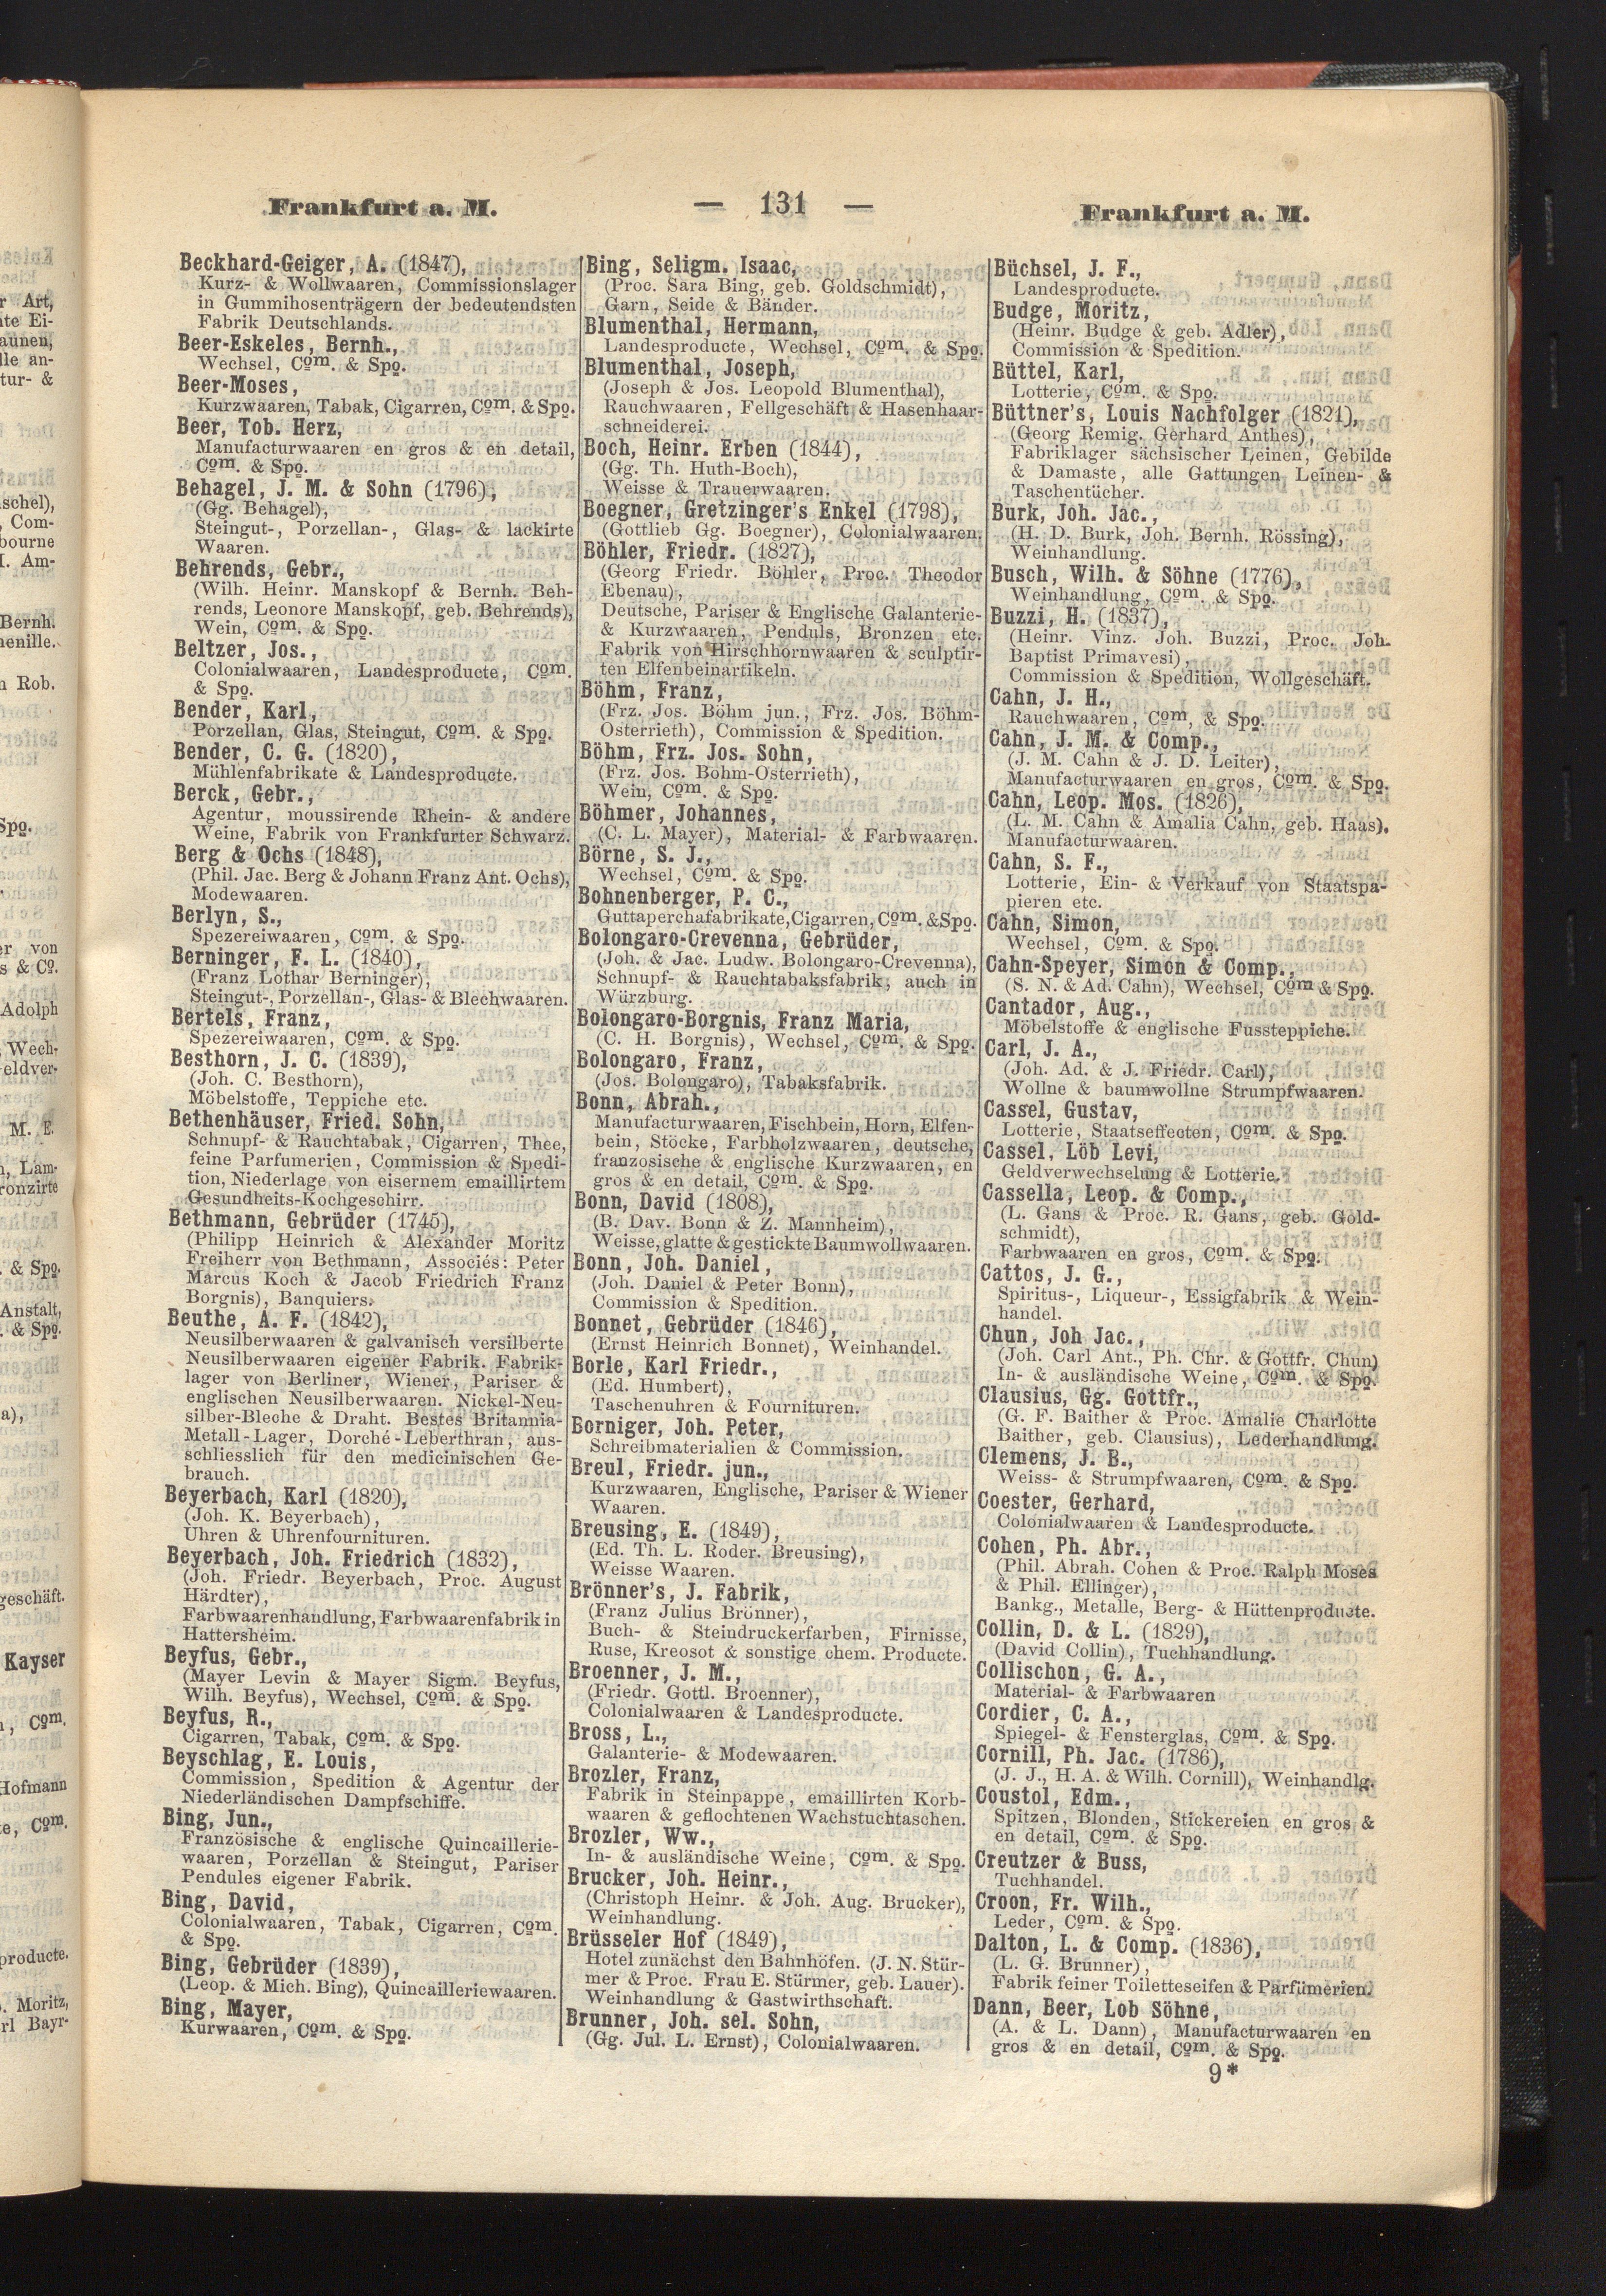 Frankfurt a. M.
— 131 —
Frankfurt a. M.
Beckhard-Geiger, A. (1847),
Kurz- & Wollwaaren, Commissionslager
in Gummihosenträgern der bedeutendsten
Fabrik Deutschlands.
Beer-Eskeles, Bernh.,
Wechsel, Com. & Spo.
Beer-Moses,
Kurzwaaren, Tabak, Cigarren, Com. & Spo.
Beer, Tob. Herz,
Manufacturwaaren en gros & en detail,
Com. & Spo.
Behagel, J. M. & Sohn (1796),
(Gg. Behagel),
Steingut-, Porzellan-, Glas- & lackirte
Waaren.
Behrends, Gebr.,
(Wilh. Heinr. Manskopf & Bernh. Beh-
rends, Leonore Manskopf, geb. Behrends),
Wein, Com. & Spo.
Beltzer, Jos.,
Colonialwaaren, Landesproducte, Com.
& Spo.
Bender, Karl,
Porzellan, Glas, Steingut, Com. & Spo.
Bender, C. G. (1820),
Mühlenfabrikate & Landesproducte.
Berck, Gebr.,
Agentur, moussirende Rhein- & andere
Weine, Fabrik von Frankfurter Schwarz.
Berg & Ochs (1848),
(Phil. Jac. Berg & Johann Franz Ant. Ochs),
Modewaaren.
Berlyn, S.,
Spezereiwaaren, Com. & Spo.
Berninger, F. L. (1840),
(Franz Lothar Berninger),
Steingut-, Porzellan-, Glas- & Blechwaaren.
Bertels, Franz,
Spezereiwaaren, Com. & Spo.
Besthorn, J. C. (1839),
(Joh. C. Besthorn),
Möbelstoffe, Teppiche etc.
Bethenhäuser, Fried. Sohn,
Schnupf- & Rauchtabak, Cigarren, Thee,
feine Parfumerien, Commission & Spedi-
tion, Niederlage von eisernem emaillirtem
Gesundheits-Kochgeschirr.
Bethmann, Gebrüder (1745),
(Philipp Heinrich & Alexander Moritz
Freiherr von Bethmann, Associés: Peter
Marcus Koch & Jacob Friedrich Franz
Borgnis), Banquiers.
Beuthe, A. F. (1842),
Neusilberwaaren & galvanisch versilberte
Neusilberwaaren eigener Fabrik. Fabrik-
lager von Berliner, Wiener, Pariser &
englischen Neusilberwaaren. Nickel-Neu-
silber-Bleche & Draht. Bestes Britannia-
Metall-Lager, Dorché-Leberthran, aus-
schliesslich für den medicinischen Ge-
brauch.
Beyerbach, Karl (1820),
(Joh. K. Beyerbach),
Uhren & Uhrenfournituren.
Beyerbach, Joh. Friedrich (1832),
(Joh. Friedr. Beyerbach, Proc. August
Härdter),
Farbwaarenhandlung, Farbwaarenfabrik in
Hattersheim.
Beyfus, Gebr.,
(Mayer Levin & Mayer Sigm. Beyfus,
Wilh. Beyfus), Wechsel, Com. & Spo.
Beyfus, R.,
Cigarren, Tabak, Com. & Spo.
Beyschlag, E. Louis,
Commission, Spedition & Agentur der
Niederländischen Dampfschiffe.
Bing, Jun.,
Französische & englische Quincaillerie-
waaren, Porzellan & Steingut, Pariser
Pendules eigener Fabrik.
Bing, David,
Colonialwaaren, Tabak, Cigarren, Com.
& Spo.
Bing, Gebrüder (1839),
(Leop. & Mich. Bing), Quincailleriewaaren.
Bing, Mayer,
Kurwaaren, Com. & Spo.
Bing, Seligm. Isaac,
(Proc. Sara Bing, geb. Goldschmidt),
Garn, Seide & Bänder.
Blumenthal, Hermann,
Landesproducte, Wechsel, Com. & Spo.
Blumenthal, Joseph,
(Joseph & Jos. Leopold Blumenthal),
Rauchwaaren, Fellgeschäft & Hasenhaar-
schneiderei.
Boch, Heinr. Erben (1844),
(Gg. Th. Huth-Boch),
Weisse & Trauerwaaren.
Boegner, Gretzinger's Enkel (1798),
(Gottlieb Gg. Boegner), Colonialwaaren.
Böhler, Friedr. (1827),
(Georg Friedr. Böhler, Proc. Theodor
Ebenau),
Deutsche, Pariser & Englische Galanterie-
& Kurzwaaren, Penduls, Bronzen etc.
Fabrik von Hirschhornwaaren & sculptir-
ten Elfenbeinartikeln.
Böhm, Franz,
(Frz. Jos. Böhm jun., Frz. Jos. Böhm-
Osterrieth), Commission & Spedition.
Böhm, Frz. Jos. Sohn,
(Frz. Jos. Böhm-Osterrieth),
Wein, Com. & Spo.
Böhmer, Johannes,
(C. L. Mayer), Material- & Farbwaaren.
Börne, S. J.,
Wechsel, Com. & Spo.
Bohnenberger, P. C.,
Guttaperchafabrikate, Cigarren, Com. & Spo.
Bolongaro-Crevenna, Gebrüder,
(Joh. & Jac. Ludw. Bolongaro-Crevenna),
Schnupf- & Rauchtabaksfabrik, auch in
Würzburg.
Bolongaro-Borgnis, Franz Maria,
(C. H. Borgnis), Wechsel, Com. & Spo.
Bolongaro, Franz,
(Jos. Bolongaro), Tabaksfabrik.
Bonn, Abrah.,
Manufacturwaaren, Fischbein, Horn, Elfen-
bein, Stöcke, Farbholzwaaren, deutsche,
französische & englische Kurzwaaren, en
gros & en detail, Com. & Spo.
Bonn, David (1808),
(B. Dav. Bonn & Z. Mannheim),
Weisse, glatte & gestickte Baumwollwaaren.
Bonn, Joh. Daniel,
(Joh. Daniel & Peter Bonn),
Commission & Spedition.
Bonnet, Gebrüder (1846),
(Ernst Heinrich Bonnet), Weinhandel.
Borle, Karl Friedr.,
(Ed. Humbert),
Taschenuhren & Fournituren.
Borniger, Joh. Peter,
Schreibmaterialien & Commission.
Breul, Friedr. jun.,
Kurzwaaren, Englische, Pariser & Wiener
Waaren.
Breusing, E. (1849),
(Ed. Th. L. Roder. Breusing),
Weisse Waaren.
Brönner's, J. Fabrik,
(Franz Julius Brönner),
Buch- & Steindruckerfarben, Firnisse,
Ruse, Kreosot & sonstige chem. Producte.
Broenner, J. M.,
(Friedr. Gottl. Broenner),
Colonialwaaren & Landesproducte.
Bross, L.,
Galanterie- & Modewaaren.
Brozler, Franz,
Fabrik in Steinpappe, emaillirten Korb-
waaren & geflochtenen Wachstuchtaschen.
Brozler, Ww.,
In- & ausländische Weine, Com. & Spo.
Brucker, Joh. Heinr.,
(Christoph Heinr. & Joh. Aug. Brucker),
Weinhandlung.
Brüsseler Hof (1849),
Hotel zunächst den Bahnhöfen. (J. N. Stür-
mer & Proc. Frau E. Stürmer, geb. Lauer).
Weinhandlung & Gastwirthschaft.
Brunner, Joh. sel. Sohn,
(Gg. Jul. L. Ernst), Colonialwaaren.
Büchsel, J. F.,
Landesproducte.
Budge, Moritz,
(Heinr. Budge & geb. Adler),
Commission & Spedition.
Büttel, Karl,
Lotterie, Com. & Spo.
Büttner's, Louis Nachfolger (1821),
(Georg Remig. Gerhard Anthes),
Fabriklager sächsischer Leinen, Gebilde
& Damaste, alle Gattungen Leinen- &
Taschentücher.
Burk, Joh. Jac.,
(H. D. Burk, Joh. Bernh. Rössing),
Weinhandlung.
Busch, Wilh. & Söhne (1776),
Weinhandlung, Com. & Spo.
Buzzi, H. (1837),
(Heinr. Vinz. Joh. Buzzi, Proc. Joh.
Baptist Primavesi),
Commission & Spedition, Wollgeschäft.
Cahn, J. H.,
Rauchwaaren, Com, & Spo.
Cahn, J. M. & Comp.,
(J. M. Cahn & J. D. Leiter),
Manufacturwaaren en gros, Com. & Spo.
Cahn, Leop. Mos. (1826),
(L. M. Cahn & Amalia Cahn, geb. Haas),
Manufacturwaaren.
Cahn, S. F.,
Lotterie, Ein- & Verkauf von Staatspa-
pieren etc.
Cahn, Simon,
Wechsel, Com. & Spo.
Cahn-Speyer, Simon & Comp.,
(S. N. & Ad. Cahn), Wechsel, Com & Spo.
Cantador, Aug.,
Möbelstoffe & englische Fussteppiche.
Carl, J. A.,
(Joh. Ad. & J. Friedr. Carl),
Wollne & baumwollne Strumpfwaaren.
Cassel, Gustav,
Lotterie, Staatseffecten, Com. & Spo.
Cassel, Löb Levi,
Geldverwechselung & Lotterie.
Cassella, Leop. & Comp.,
(L. Gans & Proc. R. Gans, geb. Gold-
schmidt),
Farbwaaren en gros, Com. & Spo.
Cattos, J. G.,
Spiritus-, Liqueur-, Essigfabrik & Wein-
handel.
Chun, Joh Jac.,
(Joh. Carl Ant., Ph. Chr. & Gottfr. Chun)
In- & ausländische Weine, Com. & Spo.
Clausius, Gg. Gottfr.,
(G. F. Baither & Proc. Amalie Charlotte
Baither, geb. Clausius), Lederhandlung.
Clemens, J. B.,
Weiss- & Strumpfwaaren, Com. & Spo.
Coester, Gerhard,
Colonialwaaren & Landesproducte.
Cohen, Ph. Abr.,
(Phil. Abrah. Cohen & Proc. Ralph Moses
& Phil. Ellinger),
Bankg., Metalle, Berg- & Hüttenproducte.
Collin, D. & L. (1829),
(David Collin), Tuchhandlung.
Collischon, G. A.,
Material- & Farbwaaren
Cordier, C. A.,
Spiegel- & Fensterglas, Com. & Spo.
Cornill, Ph. Jac. (1786),
(J. J., H. A. & Wilh. Cornill), Weinhandlg.
Coustol, Edm.,
Spitzen, Blonden, Stickereien en gros &
en detail, Com. & Spo.
Creutzer & Buss,
Tuchhandel.
Croon, Fr. Wilh.,
Leder, Com. & Spo.
Dalton, L. & Comp. (1836),
(L. G. Brünner),
Fabrik feiner Toiletteseifen & Parfümerien.
Dann, Beer, Lob Söhne,
(A. & L. Dann), Manufacturwaaren en
gros & en detail, Com. & Spo.
9*